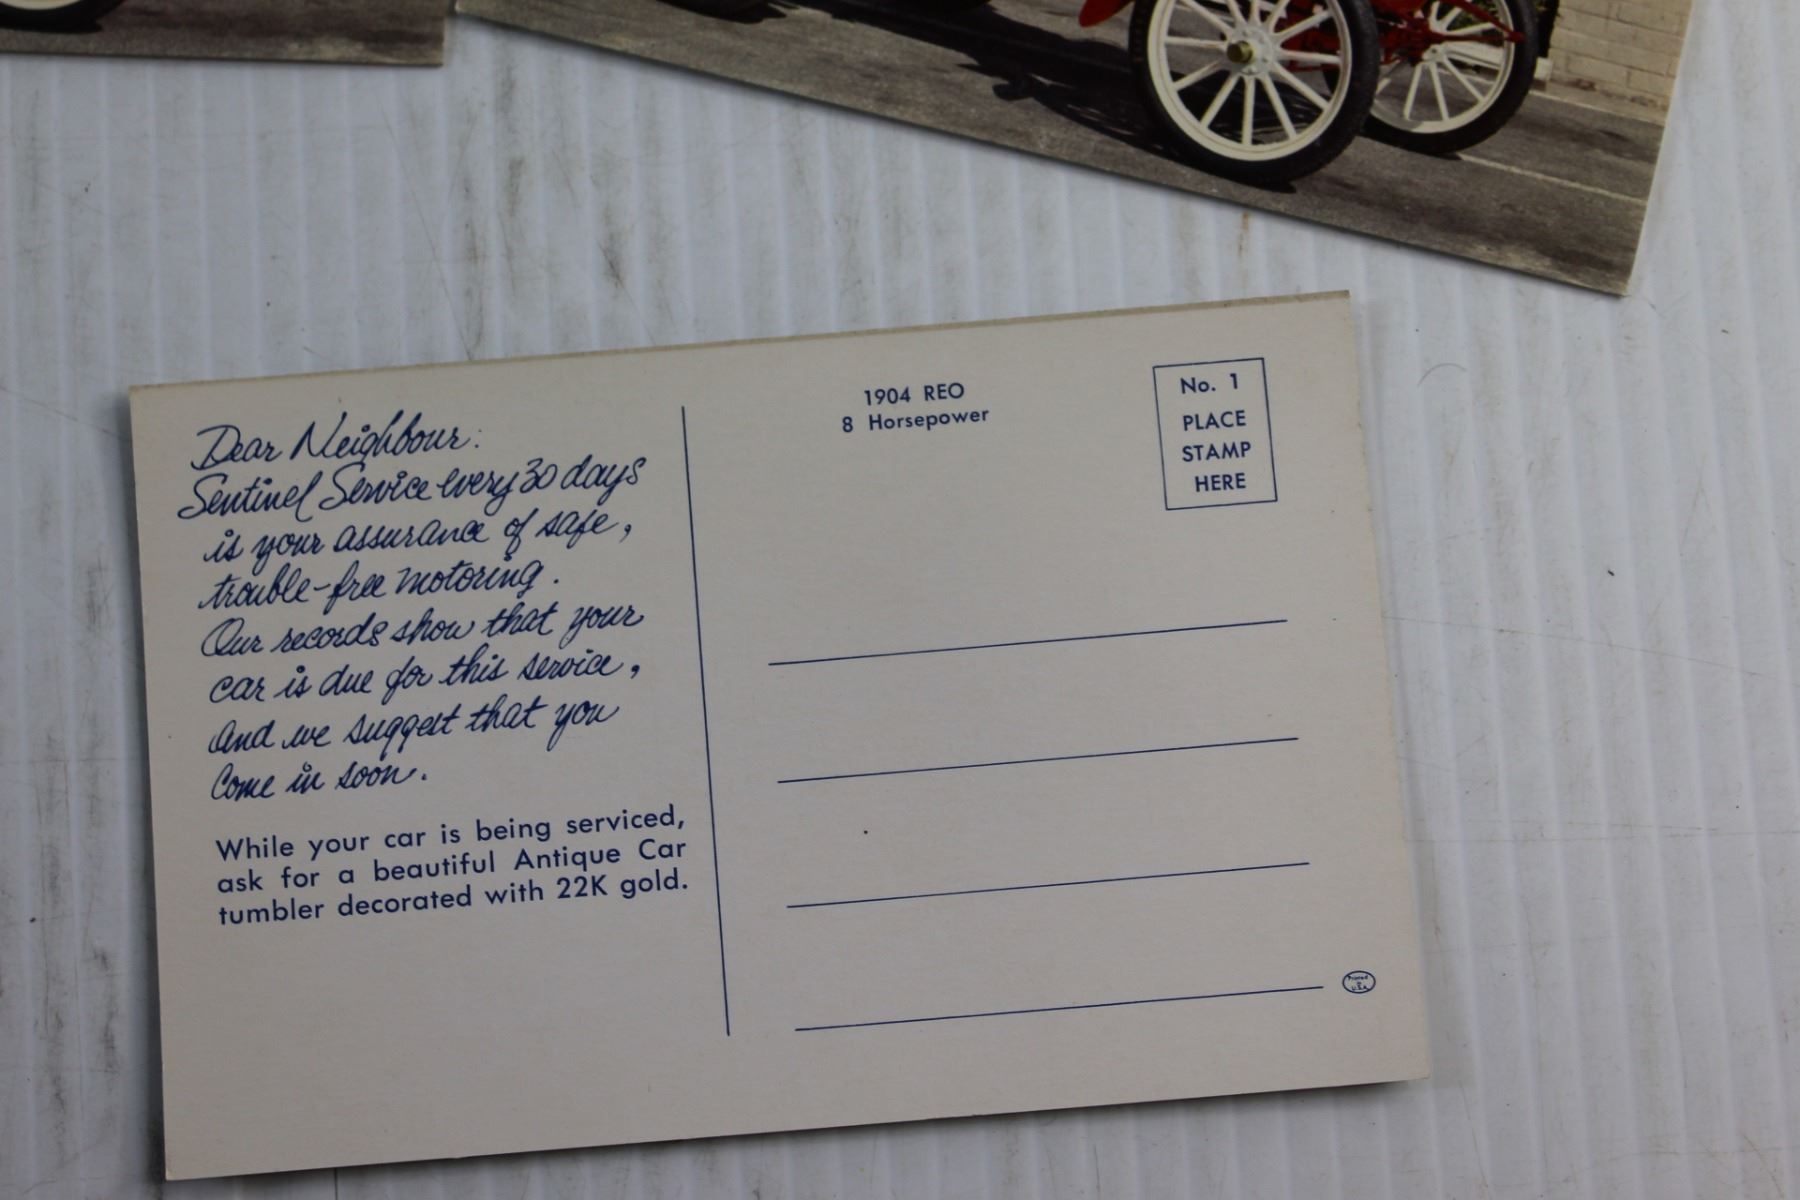 Dear Neighbour:
Sentinel Service every 30 days
is your assurance of safe,
trouble-free motoring.
Our records show that your
car is due for this service,
and we suggest that you
come in soon.
While your car is being serviced,
ask for a beautiful Antique Car
tumbler decorated with 22K gold.
1904 REO
8 Horsepower
No. 1
PLACE
STAMP
HERE
Printed
in
U.S.A.